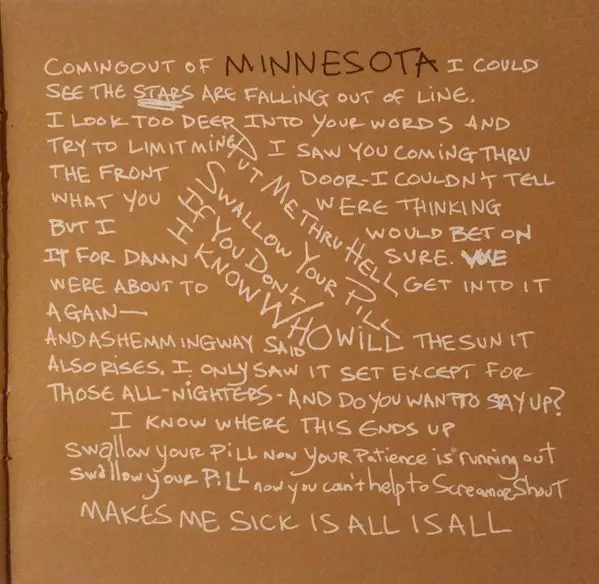 COMINGOUT OF MINNESOTA I COULD
SEE THE STARS ARE FALLING OUT OF LINE.
I LOOK TOO DEEP INTO YOUR WORDS AND
TRY TO LIMIT MINE I SAW YOU COMING THRU
THE FRONT DOOR-I COULDN'T TELL
WHAT YOU WERE THINKING
BUT I WOULD BET ON
IT FOR DAMN SURE. WE
WERE ABOUT TO GET INTO IT
AGAIN—
PUT ME THRU HELL
SWALLOW YOUR PILL
IF YOU DON'T
I KNOW WHO WILL
ANDASHEMMINGWAY SAID THE SUN IT
ALSO RISES. I ONLY SAW IT SET EXCEPT FOR
THOSE ALL-NIGHTERS-AND DO YOU WANT TO SAY UP?
I KNOW WHERE THIS ENDS UP
Swallow your Pill Now your Patience is running out
Swallow your Pill now you can't help to Scream or Shout
MAKES ME SICK IS ALL IS ALL